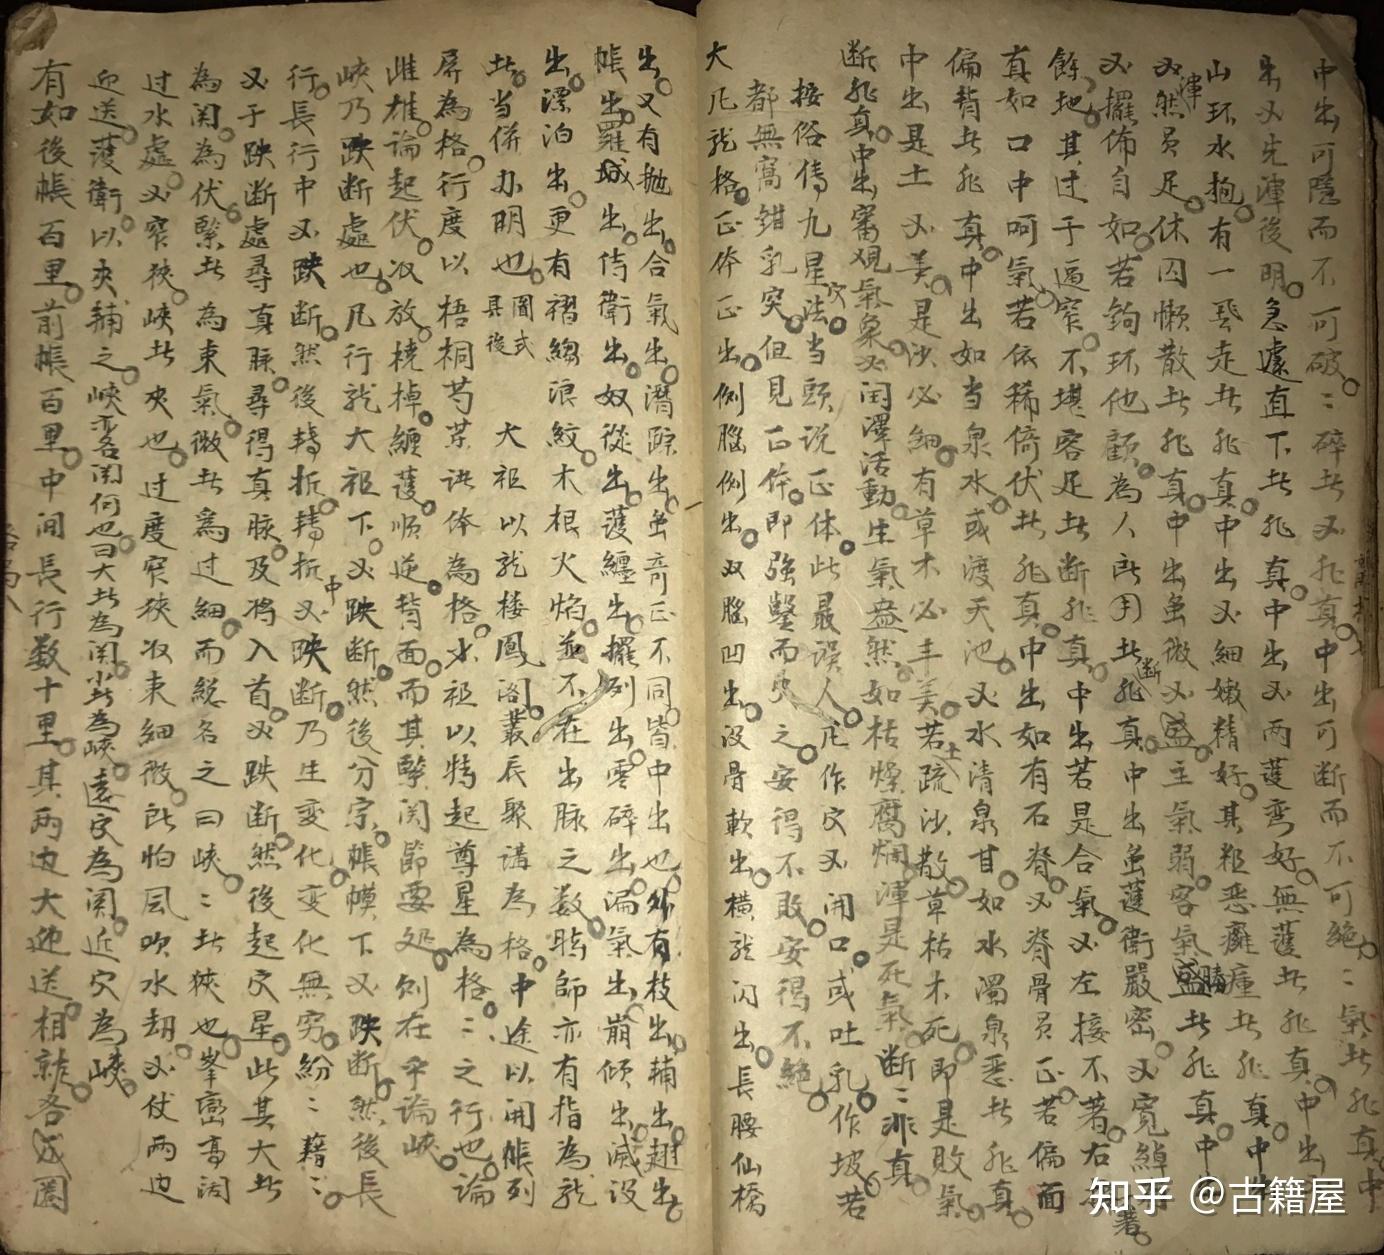 中出可隱而不可破〻碎者又非真中出可断而不可絕〻氣者非真中
出又先渾後明急遽直下者非真中出又两護弯好無護者非真中出
山环水抱有一飛走者非真中出又細嫩精好其粗恶癰瘇者非真中
又渾然員足休囚懒散者非真中出虽微又盛主氣弱客氣勝者非真中
又擺佈自如若鉤环他顧為人所用者非真中出虽護衛嚴密又寬綽
餘地其过于逼窄不堪容足者断非真中出若是合氣又左接不著右
真如口中呵氣若依稀倚伏者非真中出如有石脊又脊骨員正若偏面
偏背者非真中出如当泉水或渡天池又水清泉甘如水濁泉恶者非真
中出是土又美是沙必細有草木必丰美若疏沙散草枯木死即是败氣
断非真中出審观氣象又闰澤活動生氣盎然如枯燥腐爛渾是死氣断〻非真
按俗傳九星穴法当頭说正体此最误人凡作穴又開口或吐乳作坡若
都無窩鉗乳突但見正体即强鑿而穴之安得不败安得不絕
大凡龙格正体正出側腦側出双腦凹出没骨軟出横龙闪出長腰仙橋
出又有抛出合氣出潛踪出虽奇正不同皆中出也外有枝出輔出翅出
帳出羅城出侍衛出奴從出護纏出擺列出零碎出漏氣出崩傾出減没
出漂泊出更有褶縐浪紋木根火焰並不在出脉之数時師亦有指為龙
者当併办明也圖式具後 大祖以龙楼鳳阁叢辰聚講為格中途以開帳列
屏為格行度以梧桐芍葉诸体為格少祖以特起尊星為格〻之行也論
雌雄論起伏收放橈棹纏護順逆背面而其緊関節要处则在乎論峽
峽乃跌断處也凡行龙大祖下又跌断然後分宗帳幙下又跌断然後長
行長行中又跌断然後轉折轉折中又跌断乃生变化变化無穷紛〻藉〻
又于跌断處尋真脉尋得真脉及将入首又跌断然後起穴星此其大者
為関為伏緊者為束氣微者為过細而総名之曰峽〻者狹也峯巒高阔
过水處又窄狹峽者夾也过度窄狹收束細微所怕風吹水劫又仗两边
迎送護衛以夾輔之峽亦名関何也曰大者為関小者為峽遠穴為関近穴為峽
有如後帳百里前帳百里中间長行数十里其两边大迎送相就各成圖